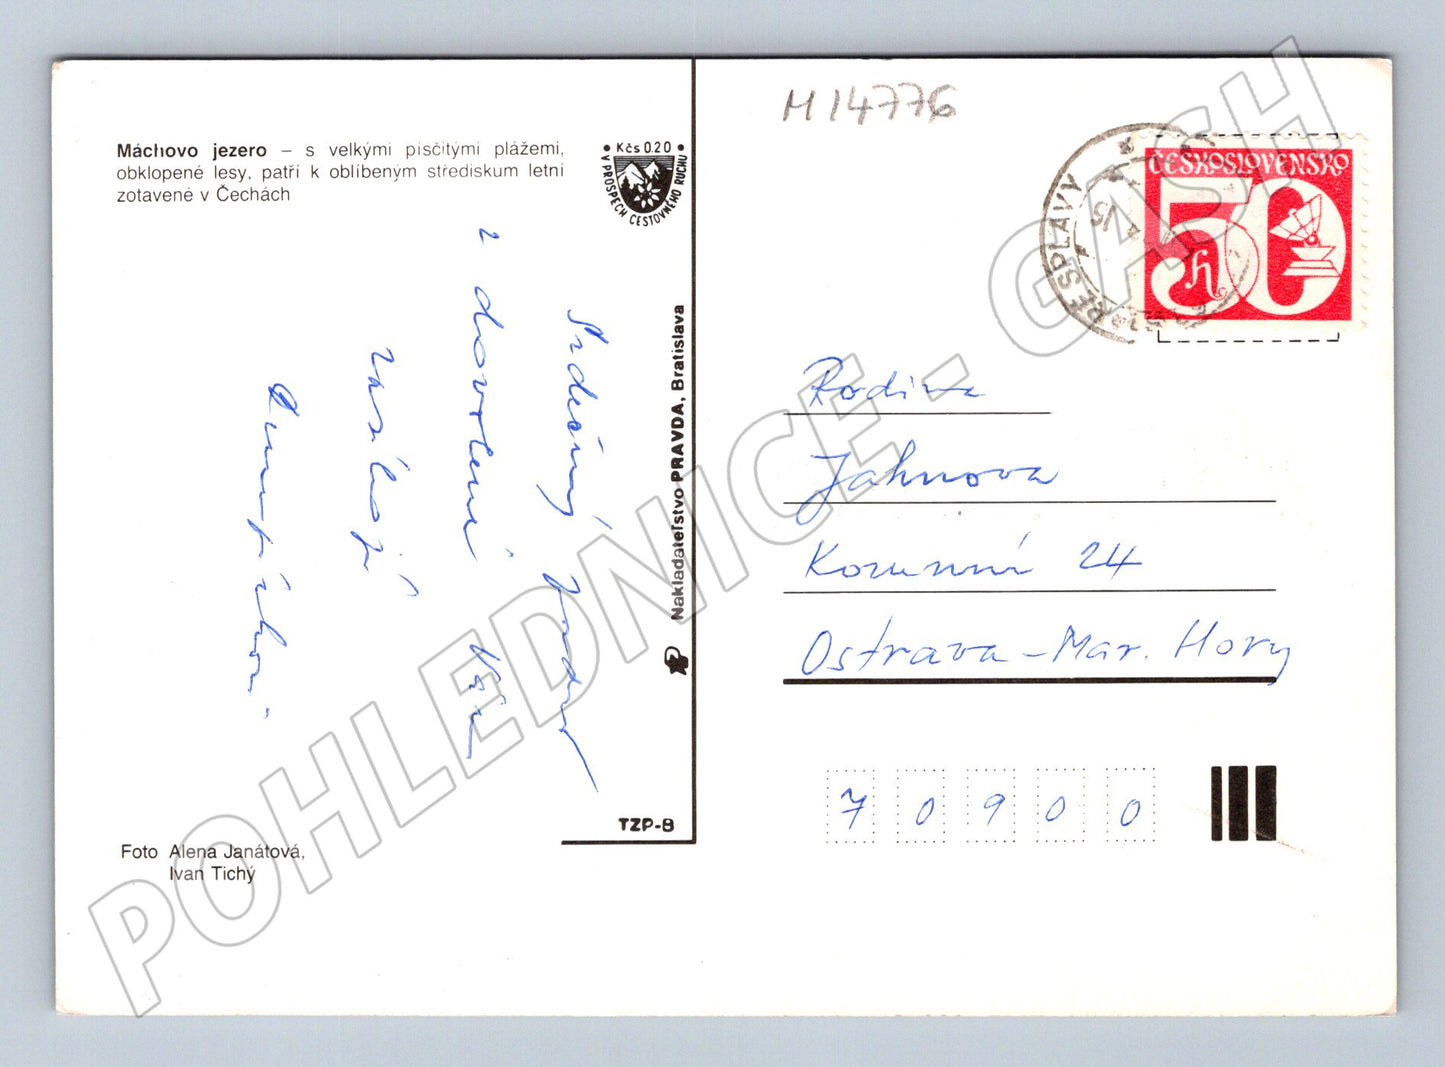 M14776
Máchovo jezero – s velkými písčitými plážemi,
obklopené lesy, patří k oblíbeným střediskum letní
zotavené v Čechách
Kčs 0.20
V PROSPECH CESTOVNÉHO RUCHU
Srdečný pozdrav
z dovolené Vám
zasílají
Nakladateľstvo PRAVDA, Bratislava
TZP-B
Foto Alena Janátová,
Ivan Tichý
STARÉ SPLAVY
ČESKOSLOVENSKO
50
h
Rodina
Jahnova
Korunní 24
Ostrava-Mar. Hory
70900
POHLEDNICE - GASH